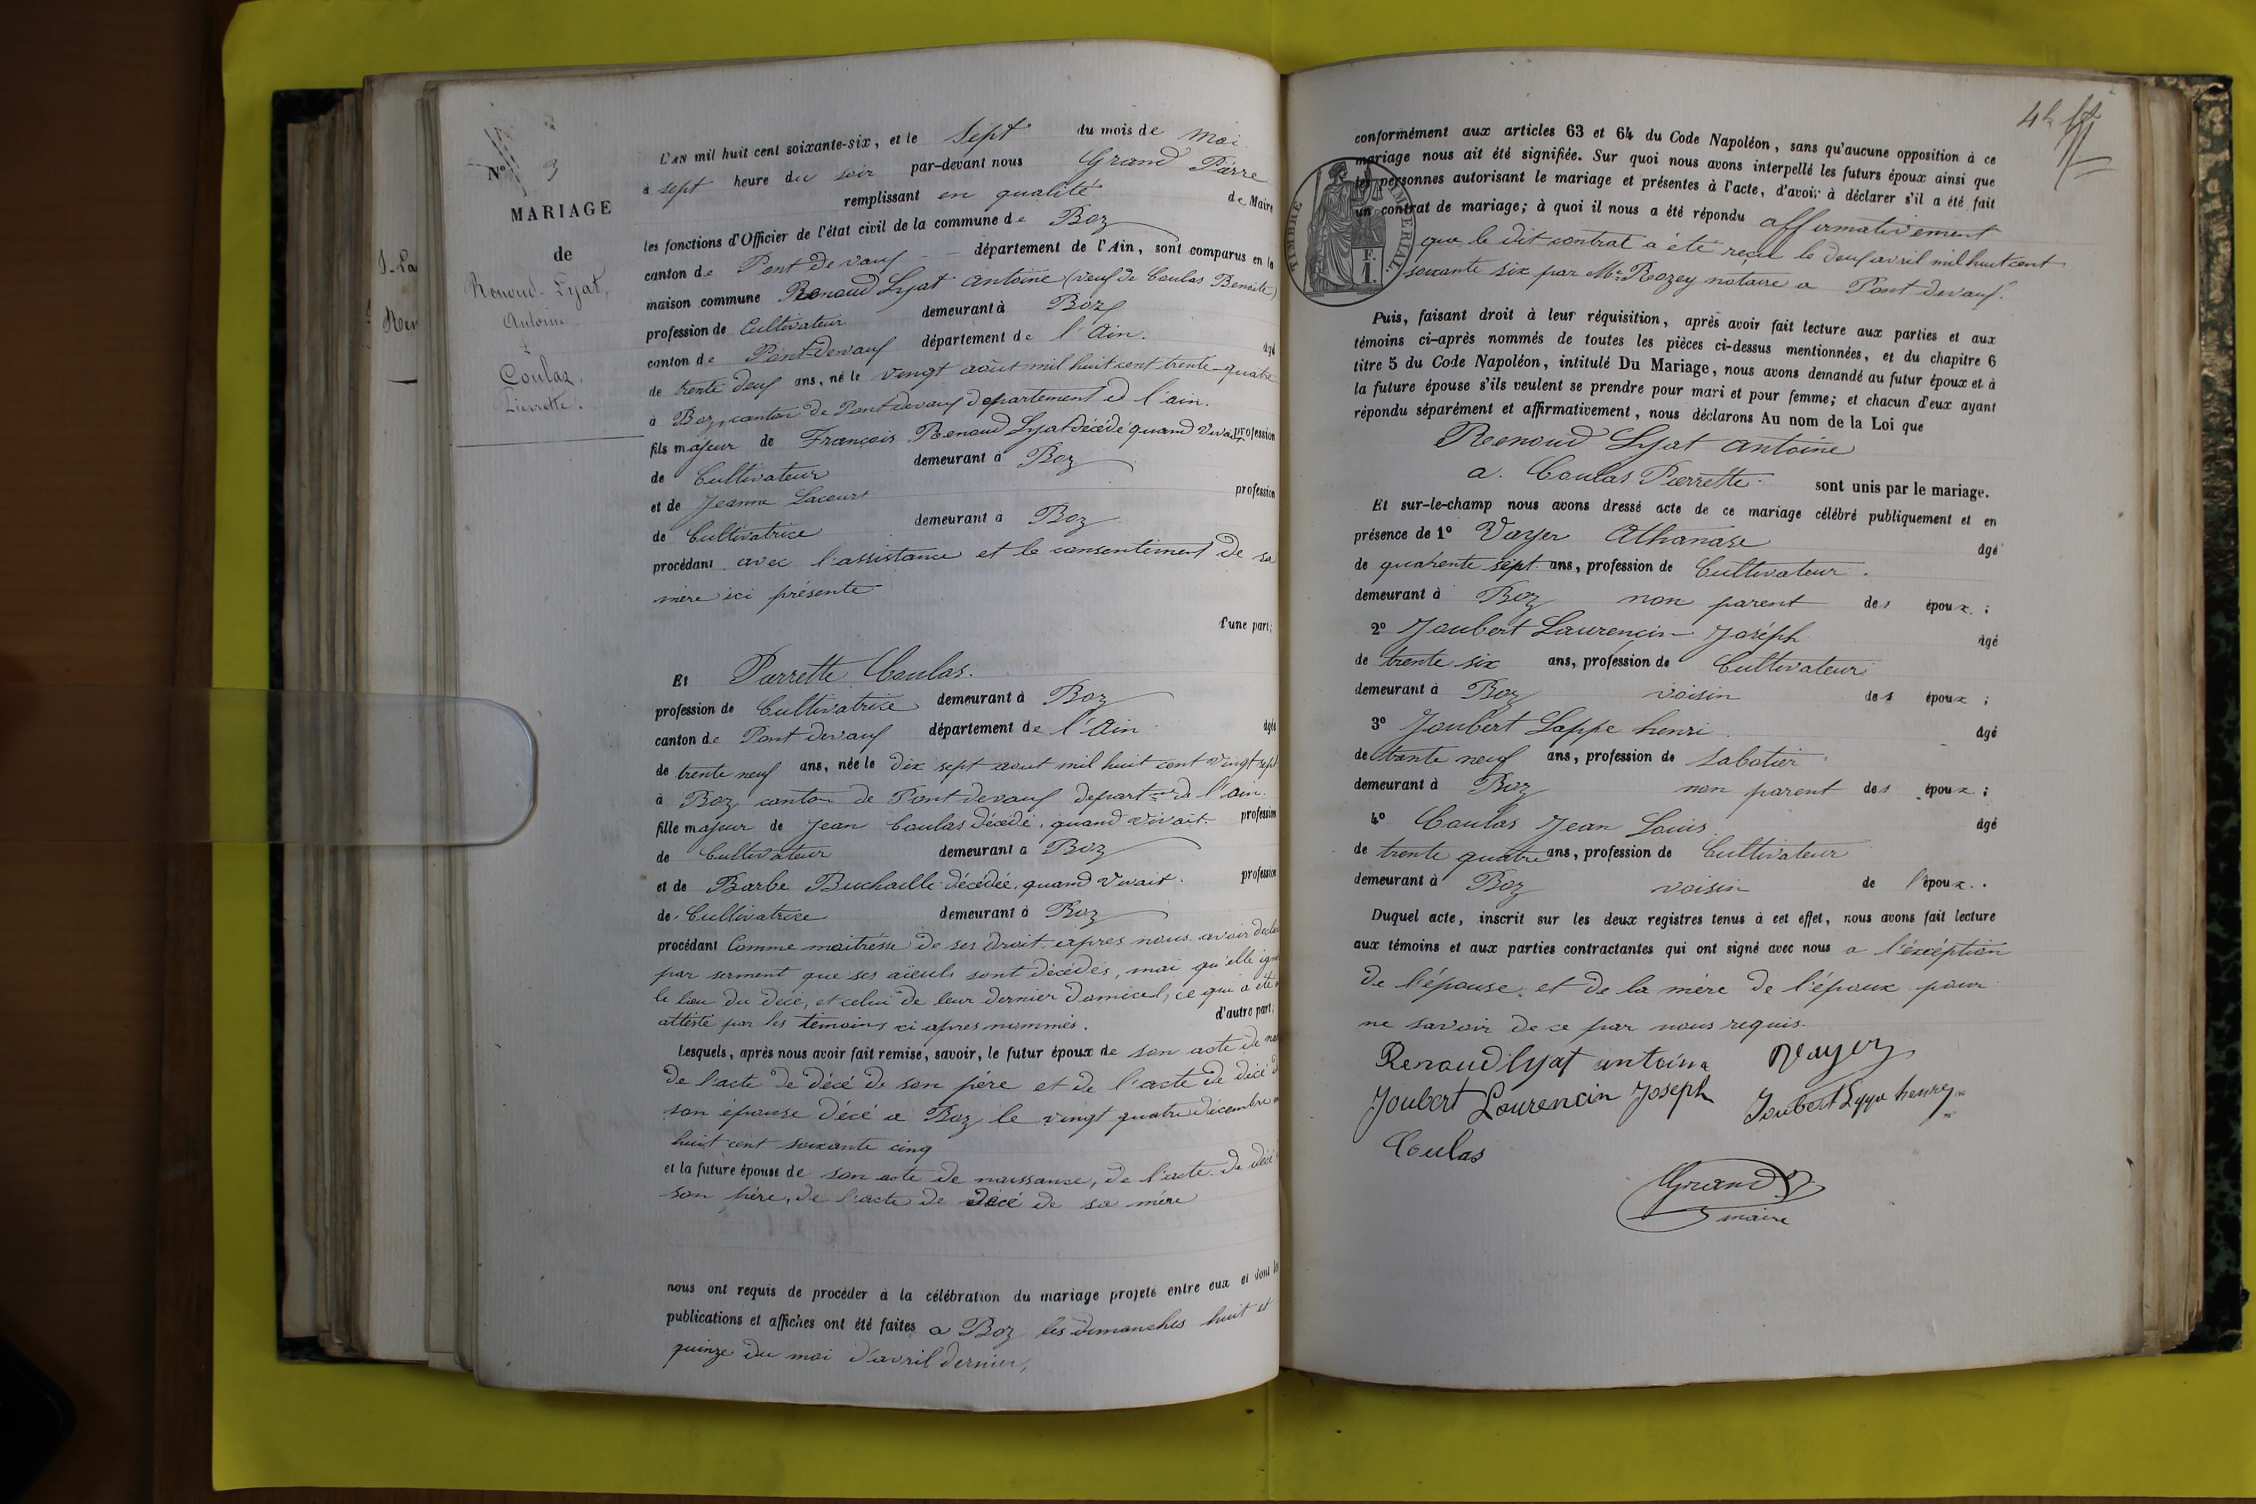 N° 3
MARIAGE
de
Renoud-Lyat,
Antoine
&
Coulaz.
Pierrette.
L'an mil huit cent soixante-six, et le Sept du mois de mai
à sept heure du soir par-devant nous Grand Pierre
remplissant en qualité de Maire
les fonctions d'Officier de l'état civil de la commune de Boz
canton de Pont devaux département de l'Ain, sont comparus en la
maison commune Renoud Lyat Antoine (veuf de Coulas Benoite)
profession de Cultivateur demeurant à Boz
canton de Pont-devaux département de l'Ain. âgé
de trente deux ans, né le vingt août mil huit cent trente-quatre
à Boz, canton de Pontdevaux département ed l'ain.
fils majeur de François Renoud Lyat décédé quand vivait profession
de Cultivateur demeurant à Boz
et de Jeanne Lacour profession
de Cultivatrice demeurant à Boz
procédant avec l'assistance et le consentement de sa
mère ici présente
d'une part;
Et Pierrette Coulas.
profession de Cultivatrice demeurant à Boz
canton de Pont devaux département de l'Ain âgée
de trente neuf ans, née le dix sept aout mil huit cent vingt sept
à Boz canton de Pont devaux depart de l'ain.
fille majeur de Jean Coulas décédé, quand vivait. profession
de Cultivateur demeurant à Boz
et de Barbe Buchaille décédée, quand vivait. profession
de Cultivatrice demeurant à Boz
procédant Comme maitrésse de ses droit expres nous avoir
par serment que ses aïeuls sont décédés, mai qu'elle
le lieu du décé, et celui de leur dernier domicil, ce qui a été
attésté par les témoins ci apres nommés. d'autre part.
Lesquels, après nous avoir fait remise, savoir, le futur époux de son acte de
de l'acte de décé de son père et de l'acte de décé
son épouse décé a Boz le vingt quatre décembre
huit cent soixante cinq
et la future épouse de son acte de naissance, de l'acte de décé
son père, de l'acte de décé de sa mère
nous ont requis de procéder à la célébration du mariage projeté entre eux et dont les
publications et affiches ont été faites a Boz les dimanches huit et
quinze du moi d'avril dernier,
conformément aux articles 63 et 64 du Code Napoléon, sans qu'aucune opposition à ce
mariage nous ait été signifiée. Sur quoi nous avons interpellé les futurs époux ainsi que
les personnes autorisant le mariage et présentes à l'acte, d'avoir à déclarer s'il a été fait
un contrat de mariage; à quoi il nous a été répondu affirmativement
que le dit contrat a été reçu le deux avril mil huit cent
soixante six par Me Rozey notaire a Pont devaux.
TIMBRE IMPÉRIAL
F.
1.
Puis, faisant droit à leur réquisition, après avoir fait lecture aux parties et aux
témoins ci-après nommés de toutes les pièces ci-dessus mentionnées, et du chapitre 6
titre 5 du Code Napoléon, intitulé Du Mariage, nous avons demandé au futur époux et à
la future épouse s'ils veulent se prendre pour mari et pour femme; et chacun d'eux ayant
répondu séparément et affirmativement, nous déclarons Au nom de la Loi que
Renoud Lyat Antoine
a. Coulas Pierrette sont unis par le mariage.
Et sur-le-champ nous avons dressé acte de ce mariage célébré publiquement et en
présence de 1° Vayer Athanase âgé
de quarente sept ans, profession de Cultivateur.
demeurant à Boz non parent des époux;
2° Joubert Laurencin Joséph âgé
de trente six ans, profession de Cultivateur
demeurant à Boz voisin des époux;
3° Joubert Lappe henri âgé
de trente neuf ans, profession de sabotier
demeurant à Boz non parent des époux;
4° Coulas Jean Louis âgé
de trente quatre ans, profession de Cultivateur
demeurant à Boz voisin de l'époux.
Duquel acte, inscrit sur les deux registres tenus à cet effet, nous avons fait lecture
aux témoins et aux parties contractantes qui ont signé avec nous a l'éxcéption
de l'épouse et de la mère de l'époux pour
ne savoir de ce par nous requis.
Renoud lyat antoine Vayer
Joubert Laurencin Joseph Joubert henry
Coulas
Grand
maire